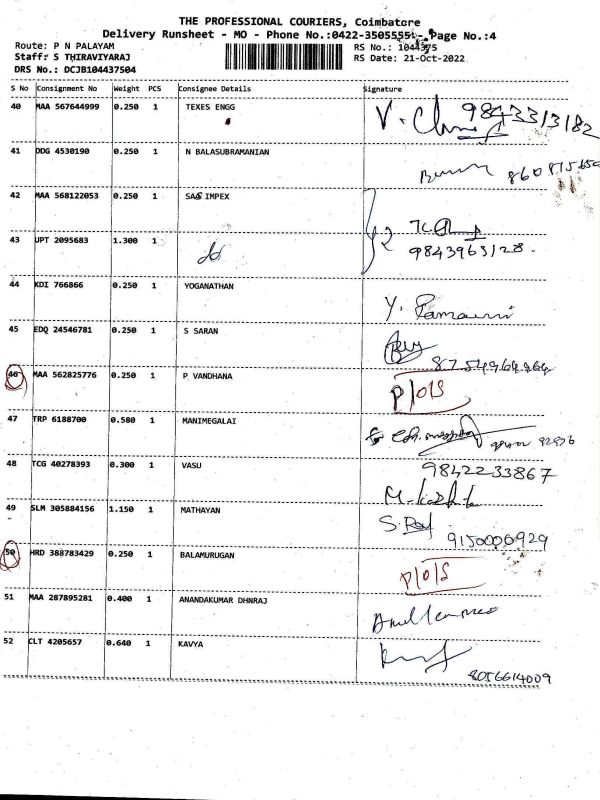 THE PROFESSIONAL COURIERS, Coimbatore
Delivery Runsheet - MO - Phone No.:0422-3505555 - Page No.:4
Route: P N PALAYAM
RS No.: 1044375
Staff: S THIRAVIYARAJ
RS Date: 21-Oct-2022
DRS No.: DCJB104437504
S No Consignment No Weight PCS Consignee Details Signature
40 MAA 567644999 0.250 1 TEXES ENGG 9843313182
41 DDG 4530190 0.250 1 N BALASUBRAMANIAN
42 MAA 568122053 0.250 1 SAS IMPEX
43 UPT 2095683 1.300 1 9843963128
44 KDI 766866 0.250 1 YOGANATHAN
45 EDQ 24546781 0.250 1 S SARAN
46 MAA 562825776 0.250 1 P VANDHANA P/O/S
47 TRP 6188700 0.580 1 MANIMEGALAI
48 TCG 40278393 0.300 1 VASU 9842233867
49 SLM 305884156 1.150 1 MATHAYAN 9150000929
50 HRD 388783429 0.250 1 BALAMURUGAN P/O/S
51 MAA 287895281 0.400 1 ANANDAKUMAR DHNRAJ
52 CLT 4205657 0.640 1 KAVYA 8056614009